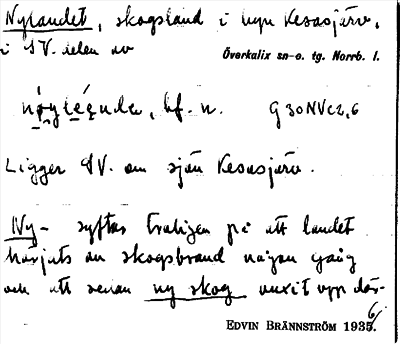 Nylandet, skogsland i byn Kesasjärv,
i SV. delen av
Överkalix sn-o. tg. Norrb. l.
bf. n. G 30 NV c2,6
Ligger SV. om sjön Kesasjärv.
Ny- syftar troligen på att landet
härjats av skogsbrand någon gång
och att sedan ny skog vuxit upp där.
EDVIN BRÄNNSTRÖM 1935